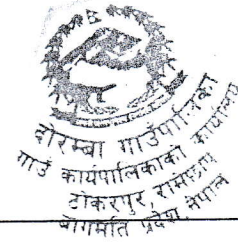 दोरम्बा गाउँपालिका
गाउँ कार्यपालिकाको कार्यालय
टोकरपुर, रामेछाप
बागमति प्रदेश, नेपाल